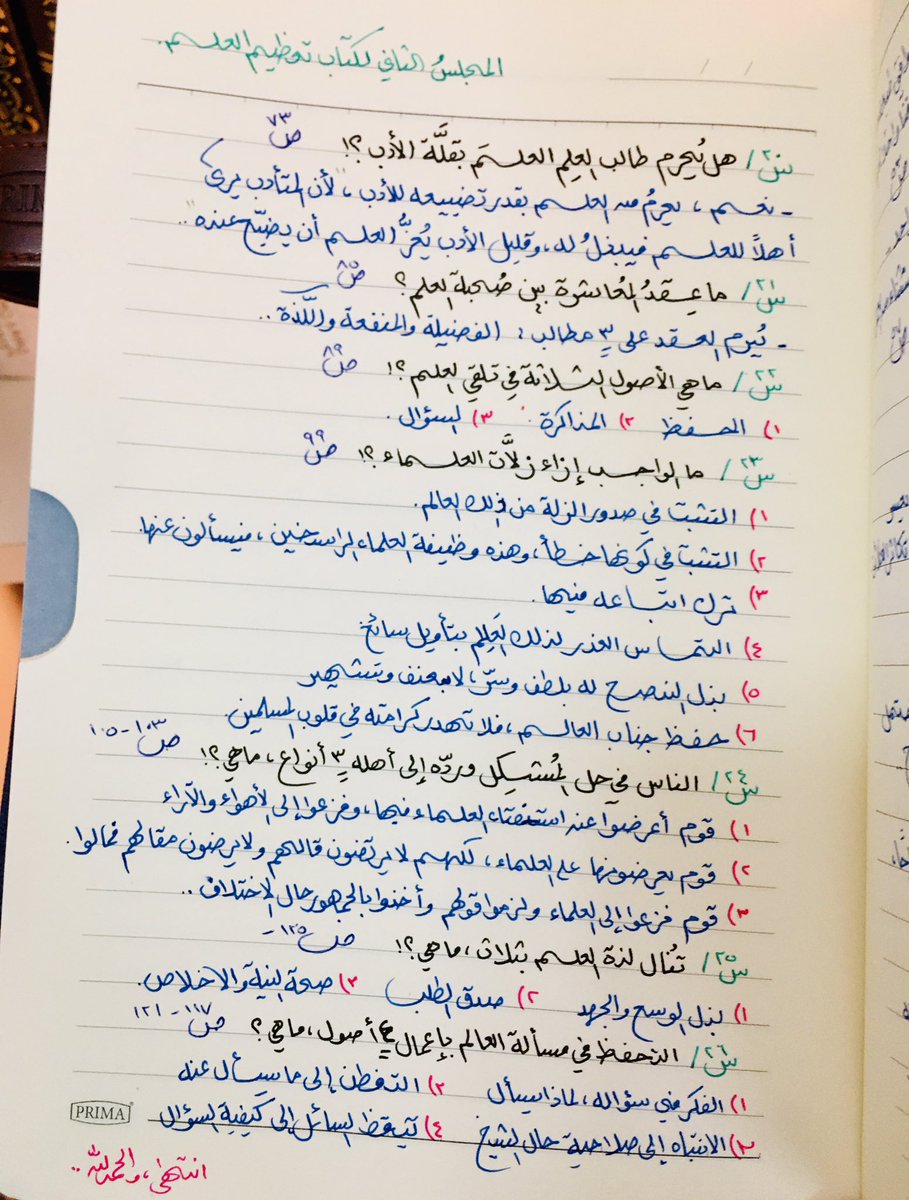 المجلسُ الثاني لكتاب تعظيم العلم.
س٢٠/ هل يُحرم طالب العلم العلمَ بقلَّة الأدب ؟! ص٧٣
- نعم ، يحرمُ من العلم بقدر تضييعه للأدب ، "لأن المتأدب يرى
أهلاً للعلم فيبذلُ له ، وقليل الأدب يُعزُّ العلم أن يضيّع عنده" ..
س٢١/ ما عقدُ المُعاشرة بين صُحبة العلم ؟ ص٨٥
- يُبرم العقد على ٣ مطالب : الفضيلة والمنفعة واللَّذة ..
س٢٢/ ماهي الأصول الثلاثة في تلقي العلم ؟! ص٨٩
١) الحفظ ٢) المذاكرة ٣) السؤال .
س٢٣/ ما الواجب إزاء زلاَّت العلماء ؟! ص٩٩
١) التثبت في صدور الزلة من ذلك العالم.
٢) التثبت في كونها خطأ ، وهذه وظيفة العلماء الراسخين ، فيسألون عنها.
٣) ترك اتباعه فيها .
٤) التماس العذر لذلك العَالِم بتأويل سائغ
٥) بذل النصح له بلطف وسرّ ، لا بعنف وتشهير
٦) حفظ جناب العالم ، فلا تهدر كرامته في قلوب المسلمين.
س٢٤/ الناس في حل المُشكِل وردّه إلى أهله ٣ أنواع ، ماهي ؟! ص١٠٣-١٠٥
١) قوم أعرضوا عنه استفتاء العلماء فيها ، وفزعوا إلى الأهواء والآراء
٢) قوم يعرضونها على العلماء ، لكنهم لا يرتضون قالهم ولا يرضون مقالهم فمالوا.
٣) قوم فزعوا إلى العلماء ولزموا قولهم وأخذوا بالجمهور حال الاختلاف ..
س٢٥/ تُنال لذة العلم بثلاث ، ماهي ؟! ص١٢٥-
١) بذل الوسع والجهد ٢) صدق الطلب ٣) صحة النية والاخلاص.
س٢٦/ التحفظ في مسألة العالم بإعمال ٤ أصول ، ماهي ؟ ص١١٧-١٢١
١) الفكر في سؤاله ، لماذا يسأل ٢) التفطن إلى ما يسأل عنه
٣) الانتباه إلى صلاحية حال الشيخ ٤) تيقظ السائل إلى كيفية السؤال
PRIMA
انتهى ، والحمدلله ..